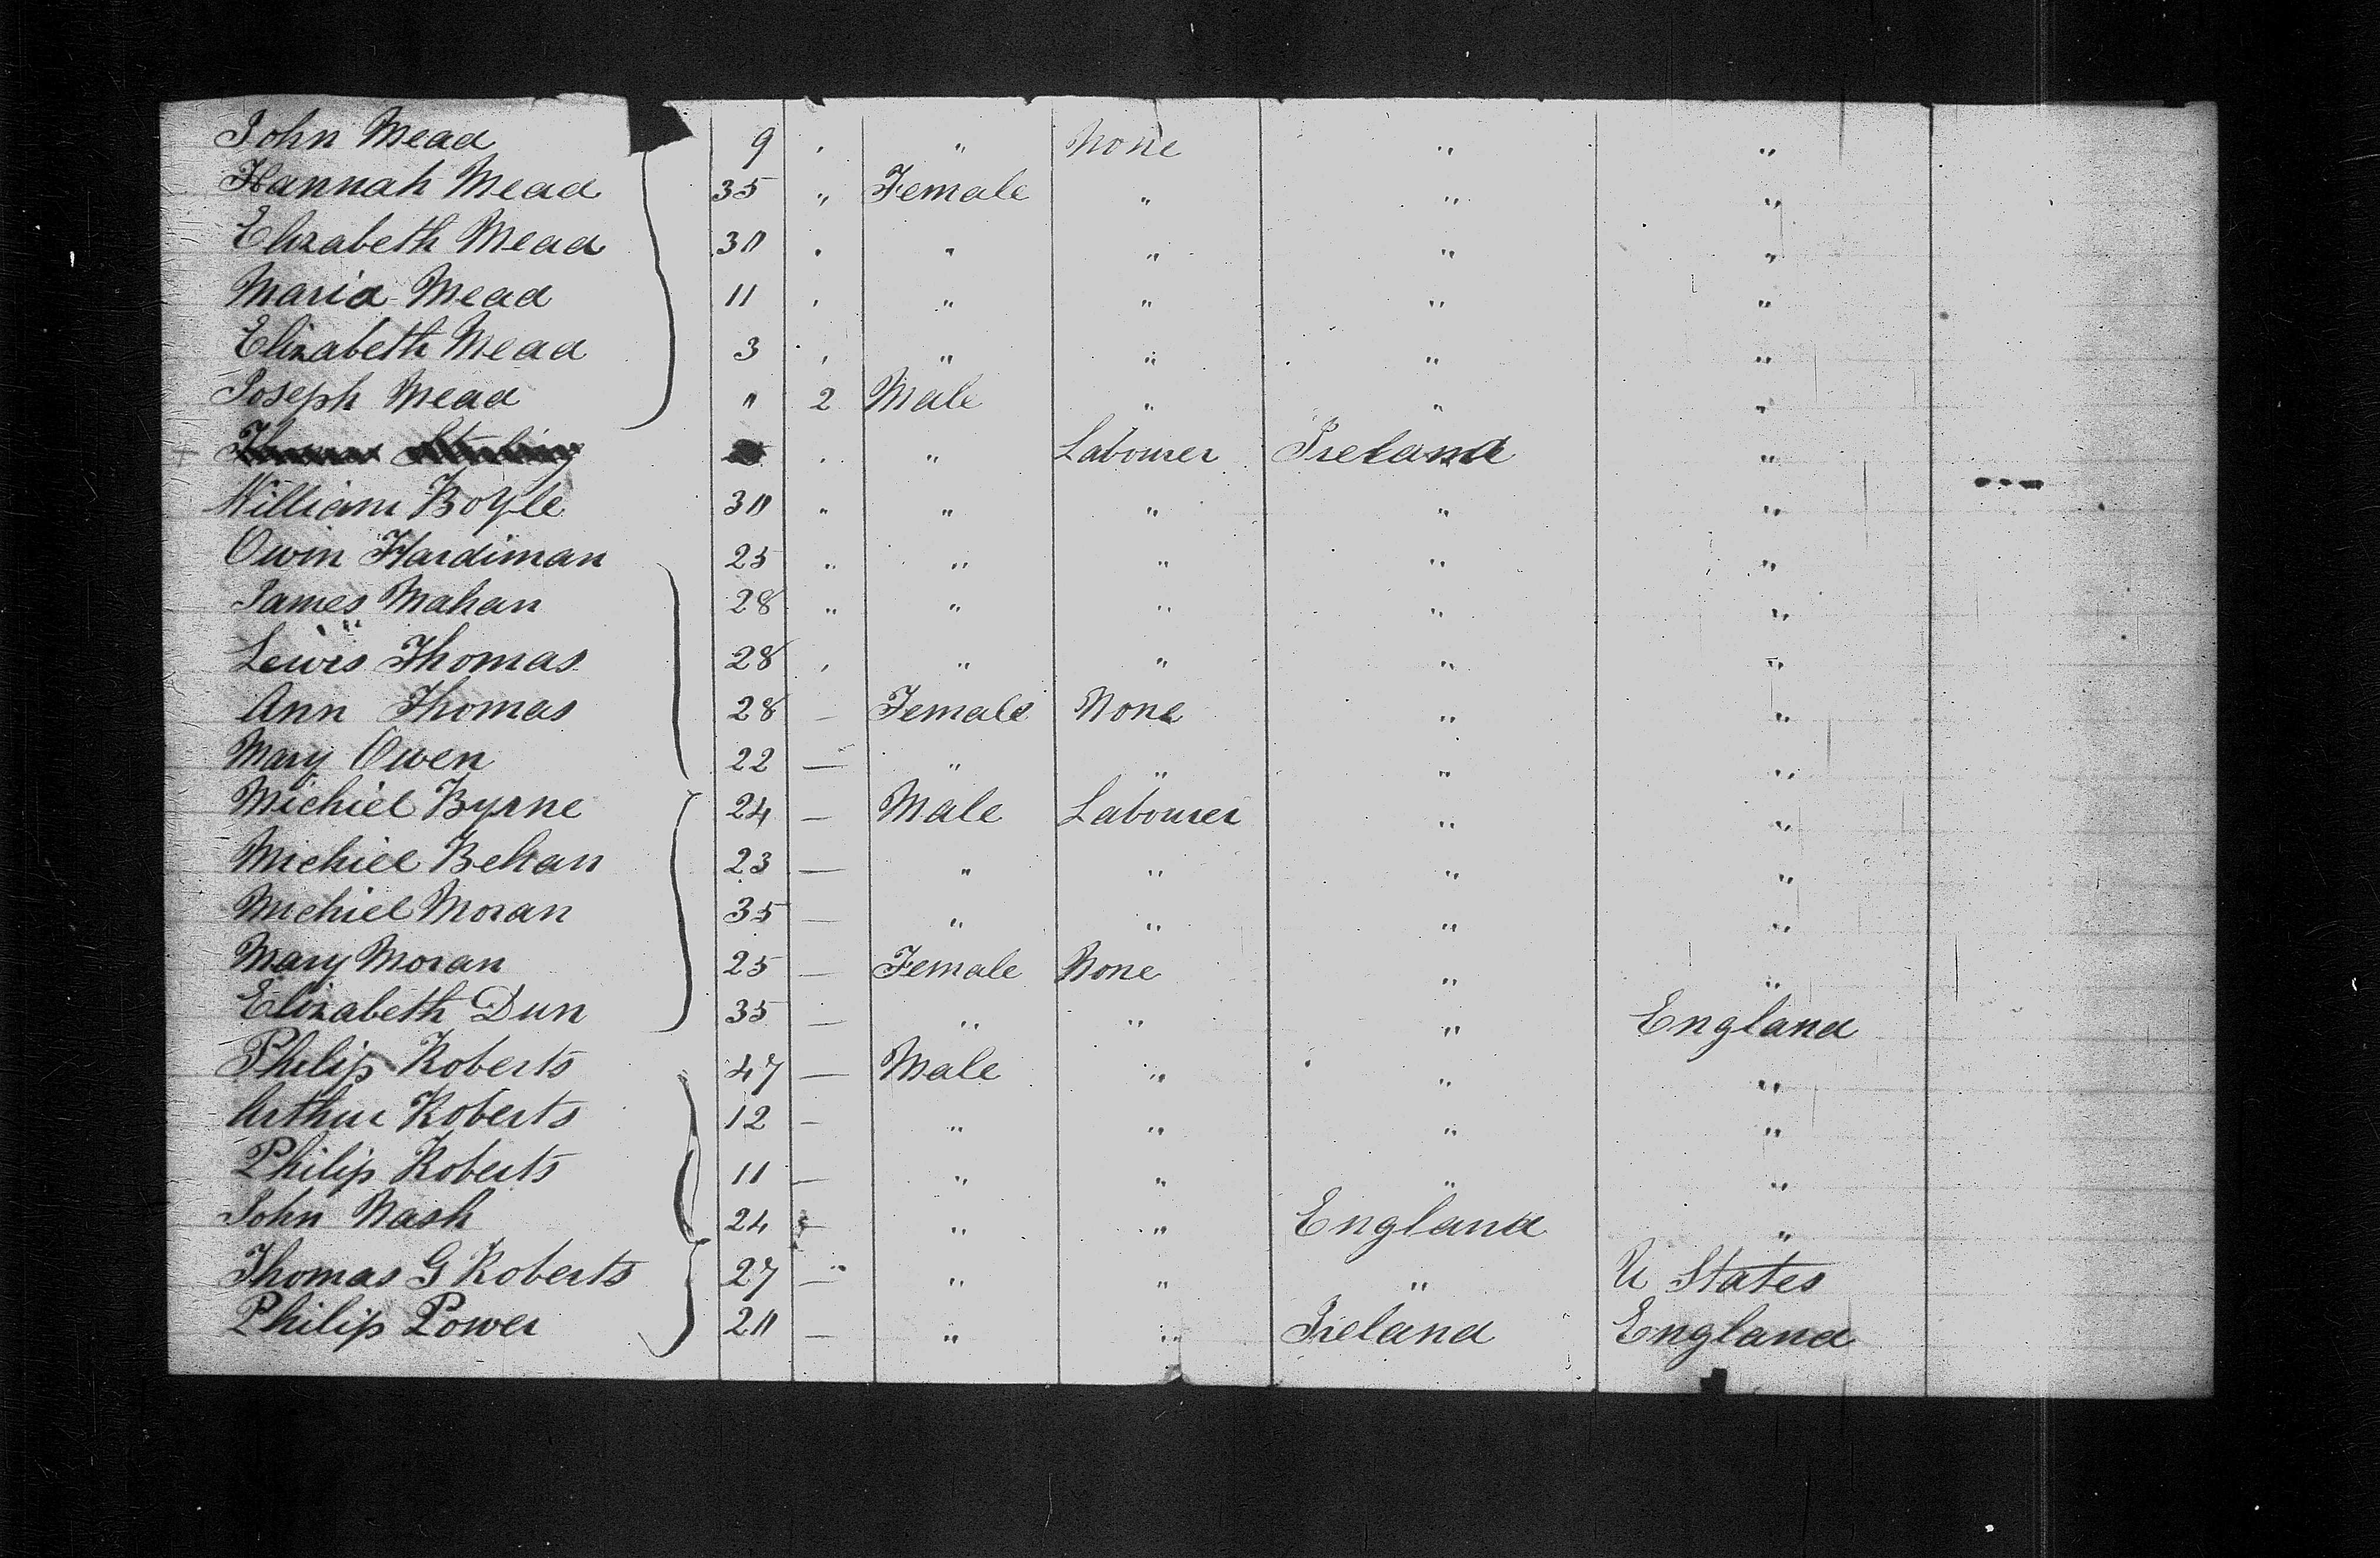 John Mead 9 " " None " "
Hannah Mead 35 " Female " " "
Elizabeth Mead 30 " " " " "
Maria Mead 11 " " " " "
Elizabeth Mead 3 " " " " "
Joseph Mead " 2 Male " " "
" " Labourer Ireland "
William Boyle 30 " " " " "
Owin Hardiman 25 " " " " "
James Mahan 28 " " " " "
Lewis Thomas 28 " " " " "
Ann Thomas 28 — Female None " "
Mary Owen 22 — " " " "
Michiel Byrne 24 — Male Labourer " "
Michiel Behan 23 — " " " "
Michiel Moran 35 — " " " "
Mary Moran 25 — Female None " "
Elizabeth Dun 35 — " " " England
Philip Roberts 47 — Male " " "
Arthur Roberts 12 — " " " "
Philip Roberts 11 — " " " "
John Nash 24 — " " England "
Thomas G Roberts 27 — " " " U States
Philip Power 20 — " " Ireland England